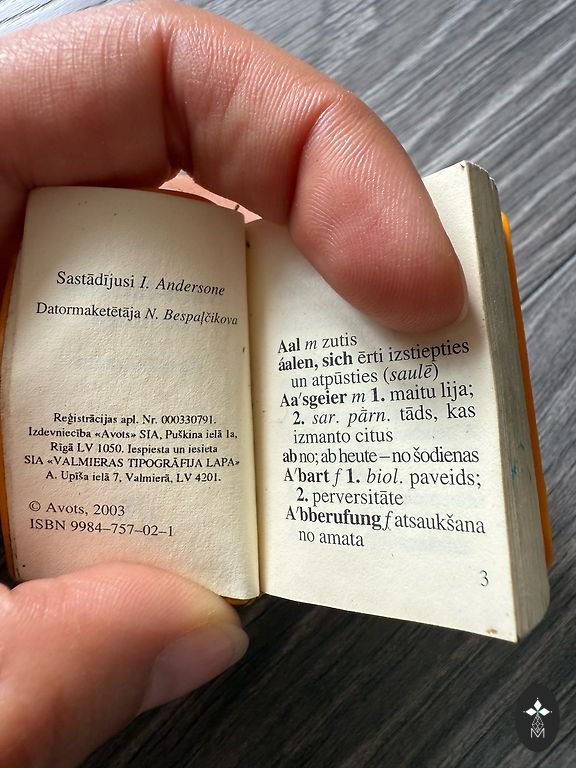 Sastādījusi I. Andersone
Datormaketētāja N. Bespaļčikova
Reģistrācijas apl. Nr. 000330791.
Izdevniecība «Avots» SIA, Puškina ielā 1a,
Rīgā LV 1050. Iespiesta un iesieta
SIA «VALMIERAS TIPOGRĀFIJA LAPA»
A. Upīša ielā 7, Valmierā, LV 4201.
© Avots, 2003
ISBN 9984–757–02–1
Aal m zutis
áalen, sich ērti izstiepties
un atpūsties (saulē)
Aa'sgeier m 1. maitu lija;
2. sar. pārn. tāds, kas
izmanto citus
ab no; ab heute – no šodienas
A'bart f 1. biol. paveids;
2. perversitāte
A'bberufung f atsaukšana
no amata
3
M